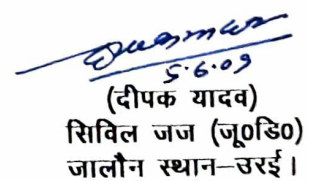 5.6.09
(दीपक यादव)
सिविल जज (जू०डि०)
जालौन स्थान-उरई।